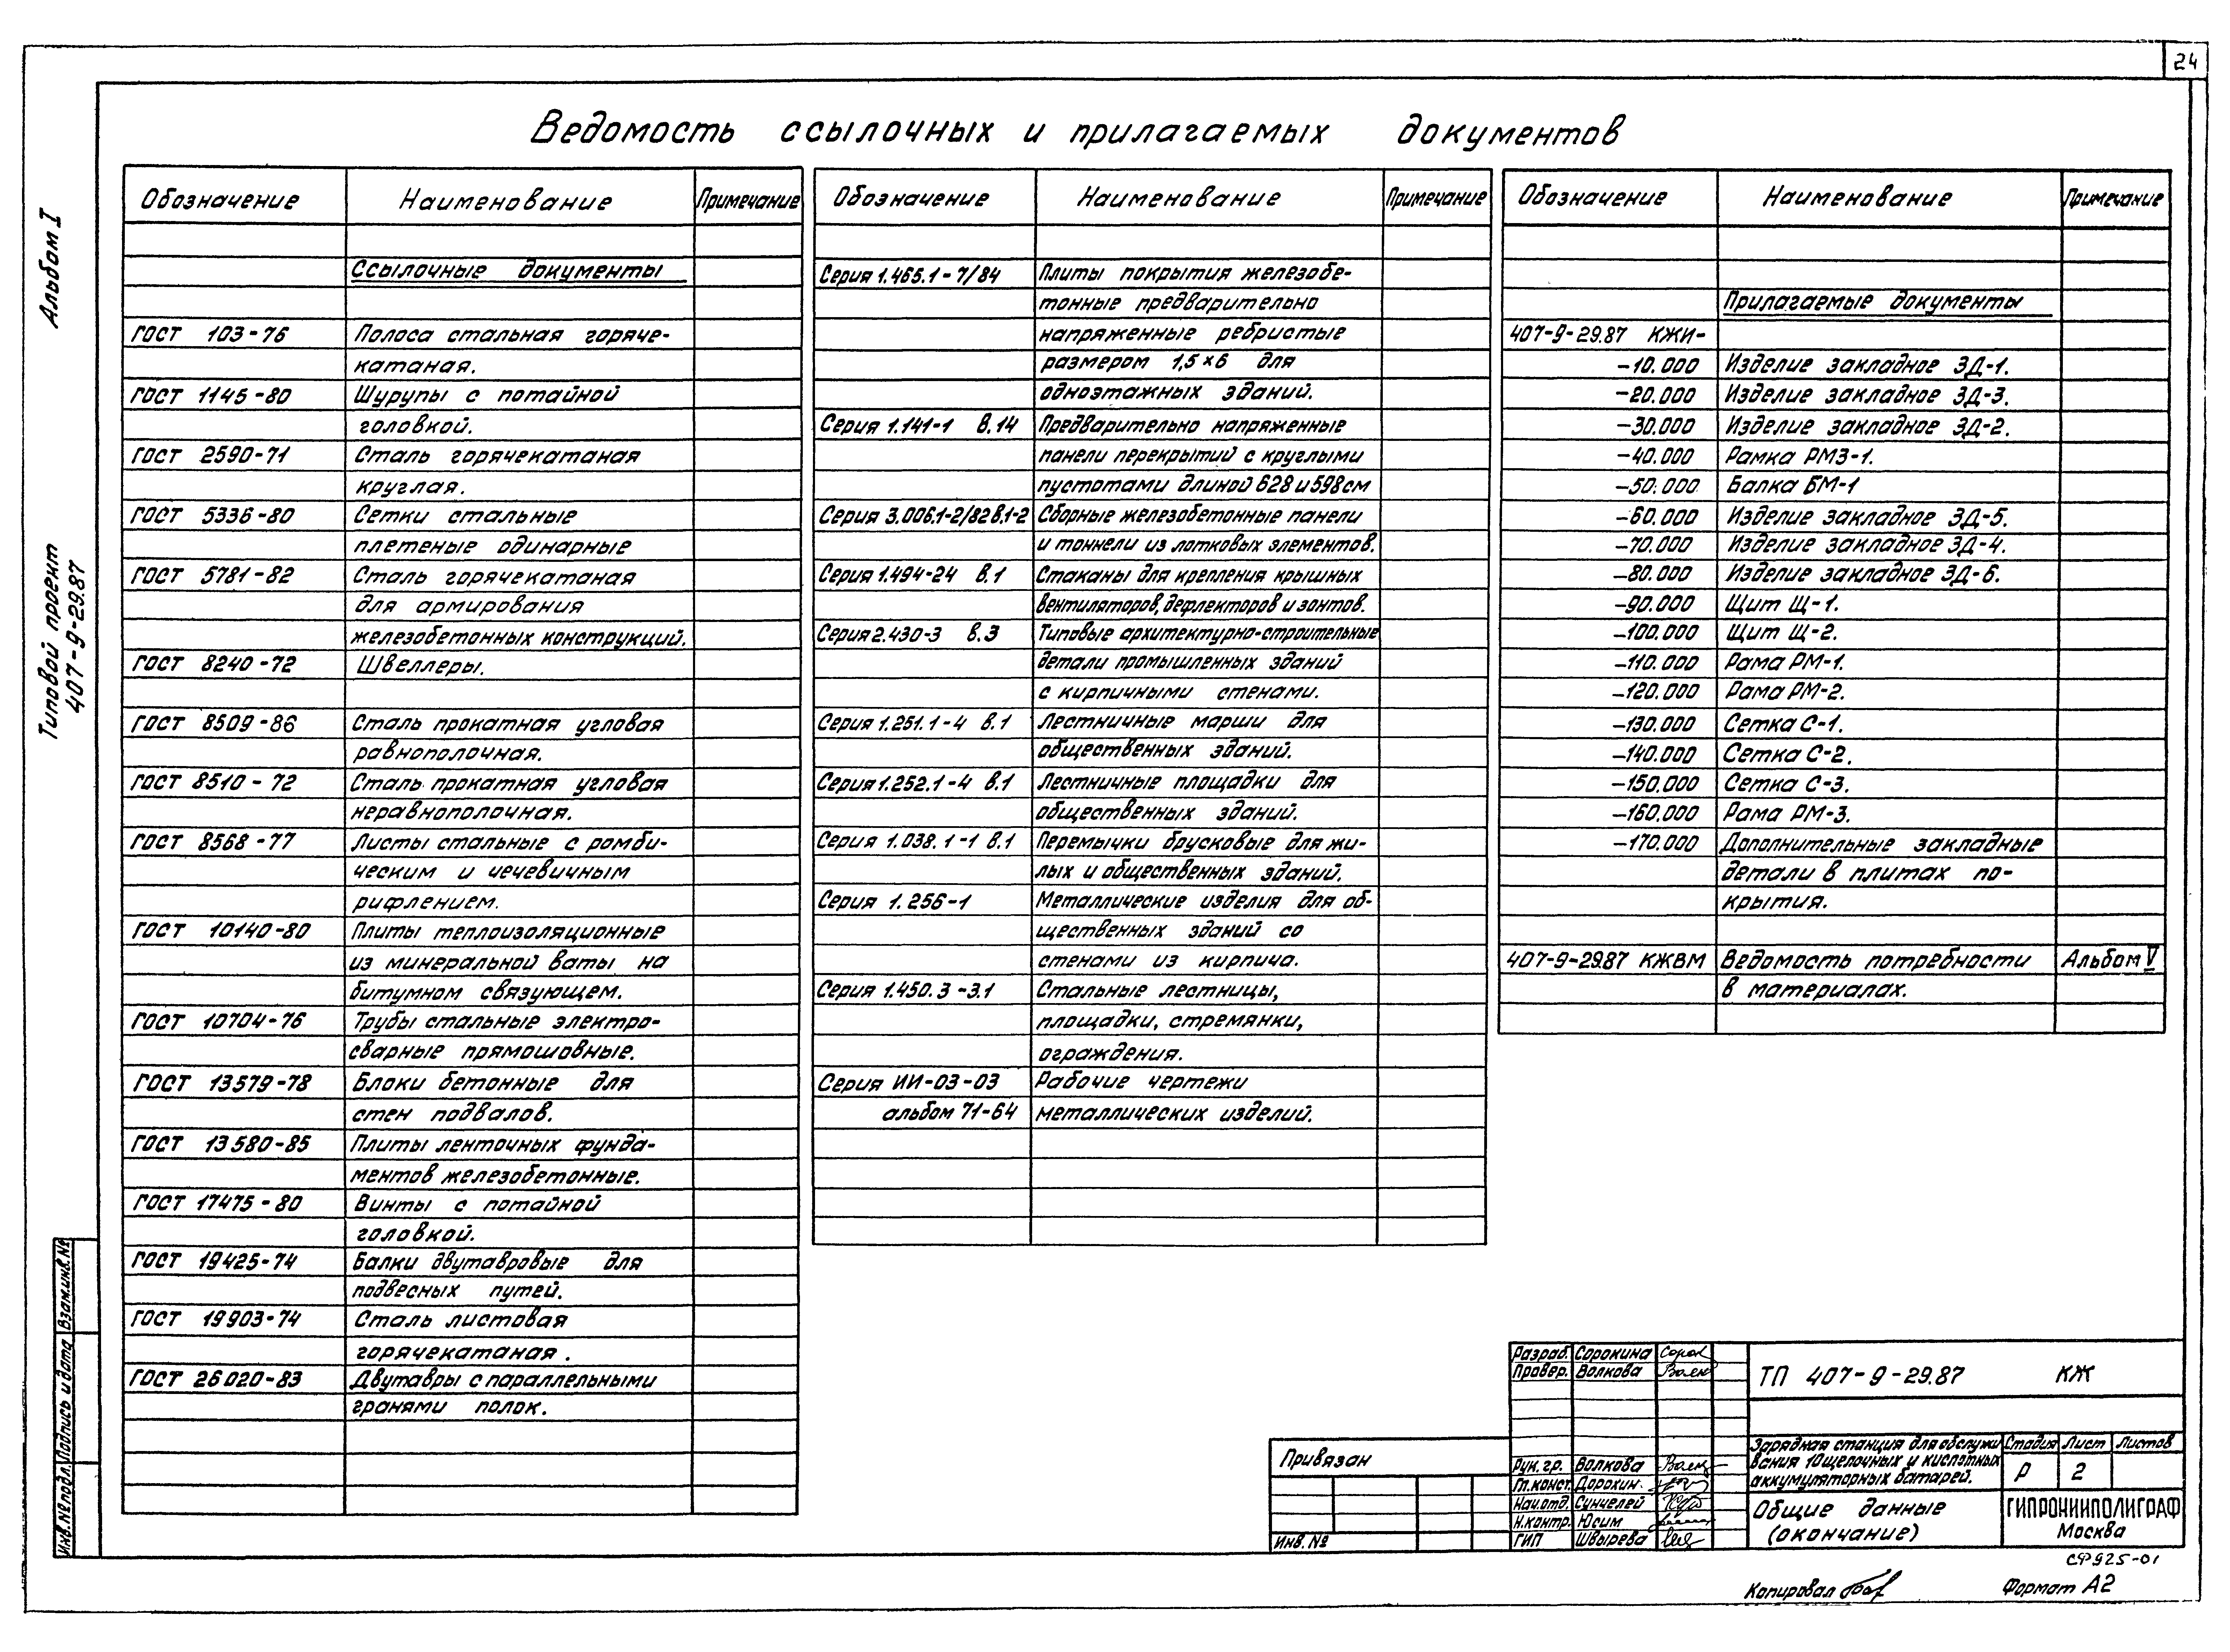 24
Ведомость ссылочных и прилагаемых документов
Альбом I
Типовой проект
407-9-29.87
Обозначение Наименование Примечание
Ссылочные документы
ГОСТ 103-76 Полоса стальная горяче-
катаная.
ГОСТ 1145-80 Шурупы с потайной
головкой.
ГОСТ 2590-71 Сталь горячекатаная
круглая.
ГОСТ 5336-80 Сетки стальные
плетеные одинарные
ГОСТ 5781-82 Сталь горячекатаная
для армирования
железобетонных конструкций.
ГОСТ 8240-72 Швеллеры.
ГОСТ 8509-86 Сталь прокатная угловая
равнополочная.
ГОСТ 8510-72 Сталь прокатная угловая
неравнополочная.
ГОСТ 8568-77 Листы стальные с ромби-
ческим и чечевичным
рифлением.
ГОСТ 10140-80 Плиты теплоизоляционные
из минеральной ваты на
битумном связующем.
ГОСТ 10704-76 Трубы стальные электро-
сварные прямошовные.
ГОСТ 13579-78 Блоки бетонные для
стен подвалов.
ГОСТ 13580-85 Плиты ленточных фунда-
ментов железобетонные.
ГОСТ 17475-80 Винты с потайной
головкой.
ГОСТ 19425-74 Балки двутавровые для
подвесных путей.
ГОСТ 19903-74 Сталь листовая
горячекатаная.
ГОСТ 26020-83 Двутавры с параллельными
гранями полок.
Обозначение Наименование Примечание
Серия 1.465.1-7/84 Плиты покрытия железобе-
тонные предварительно
напряженные ребристые
размером 1,5×6 для
одноэтажных зданий.
Серия 1.141-1 в.14 Предварительно напряженные
панели перекрытий с круглыми
пустотами длиной 628 и 598см
Серия 3.006.1-2/82 в.1-2 Сборные железобетонные панели
и тоннели из лотковых элементов.
Серия 1.494-24 в.1 Стаканы для крепления крышных
вентиляторов, дефлекторов и зонтов.
Серия 2.430-3 в.3 Типовые архитектурно-строительные
детали промышленных зданий
с кирпичными стенами.
Серия 1.251.1-4 в.1 Лестничные марши для
общественных зданий.
Серия 1.252.1-4 в.1 Лестничные площадки для
общественных зданий.
Серия 1.038.1-1 в.1 Перемычки брусковые для жи-
лых и общественных зданий.
Серия 1.256-1 Металлические изделия для об-
щественных зданий со
стенами из кирпича.
Серия 1.450.3-3.1 Стальные лестницы,
площадки, стремянки,
ограждения.
Серия ИИ-03-03 Рабочие чертежи
альбом 71-64 металлических изделий.
Обозначение Наименование Примечание
Прилагаемые документы
407-9-29.87 КЖИ-
-10.000 Изделие закладное ЗД-1.
-20.000 Изделие закладное ЗД-3.
-30.000 Изделие закладное ЗД-2.
-40.000 Рамка РМЗ-1.
-50.000 Балка БМ-1
-60.000 Изделие закладное ЗД-5.
-70.000 Изделие закладное ЗД-4.
-80.000 Изделие закладное ЗД-6.
-90.000 Щит Щ-1.
-100.000 Щит Щ-2.
-110.000 Рама РМ-1.
-120.000 Рама РМ-2.
-130.000 Сетка С-1.
-140.000 Сетка С-2.
-150.000 Сетка С-3.
-160.000 Рама РМ-3.
-170.000 Дополнительные закладные
детали в плитах по-
крытия.
407-9-29.87 КЖВМ Ведомость потребности Альбом V
в материалах.
Взам.инв.№
Подпись и дата
Инв.№ подл.
Привязан
Инв. №
Разраб. Сорокина
Провер. Волкова
Рук. гр. Волкова
Гл.конст. Дорохин.
Нач.отд. Сунчелей
Н.контр. Юсим
ГИП Швырева
ТП 407-9-29.87 КЖ
Зарядная станция для обслужи
вания 10 щелочных и кислотных
аккумуляторных батарей.
Стадия Лист Листов
Р 2
Общие данные
(окончание)
ГИПРОНИИПОЛИГРАФ
Москва
СФ925-01
Копировал
Формат А2